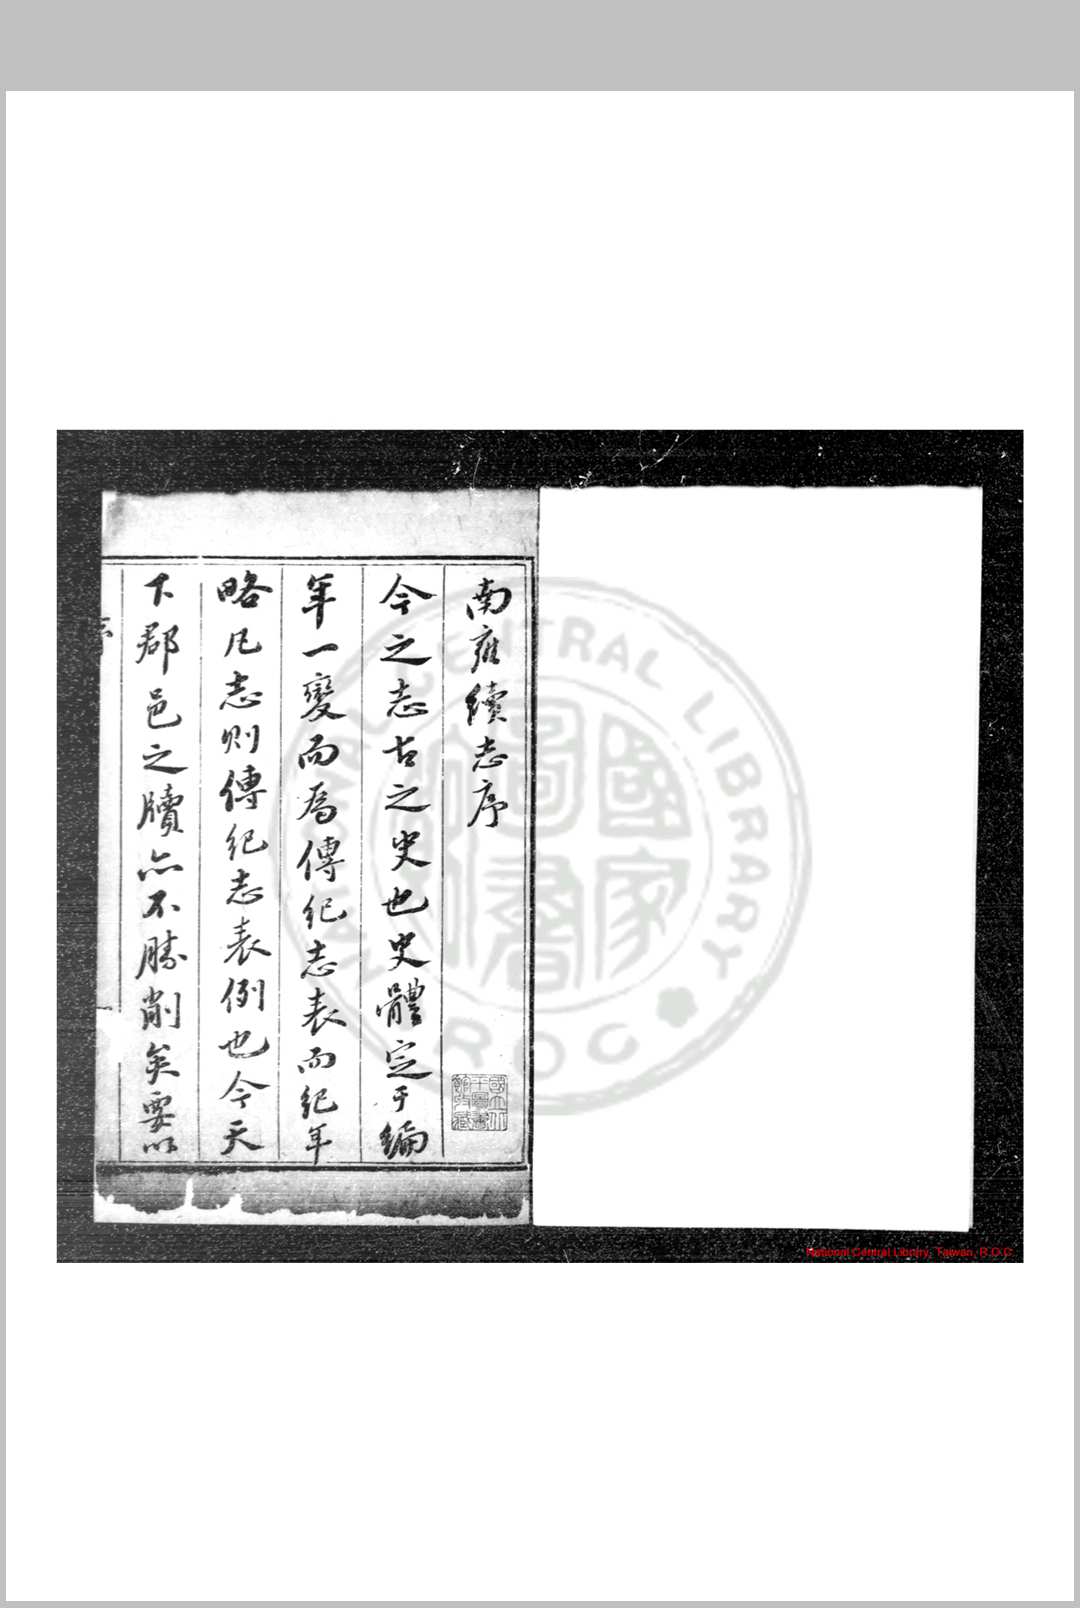 南雍續志序
今之志古之史也史體定于編
年一變而爲傳紀志表而紀年
略凡志則傳紀志表例也今天
下郡邑之牘亦不勝削矣要以
國立中
央圖書
館收藏
NATIONAL CENTRAL LIBRARY
R.O.C
國家
圖書
National Central Library, Taiwan, R.O.C